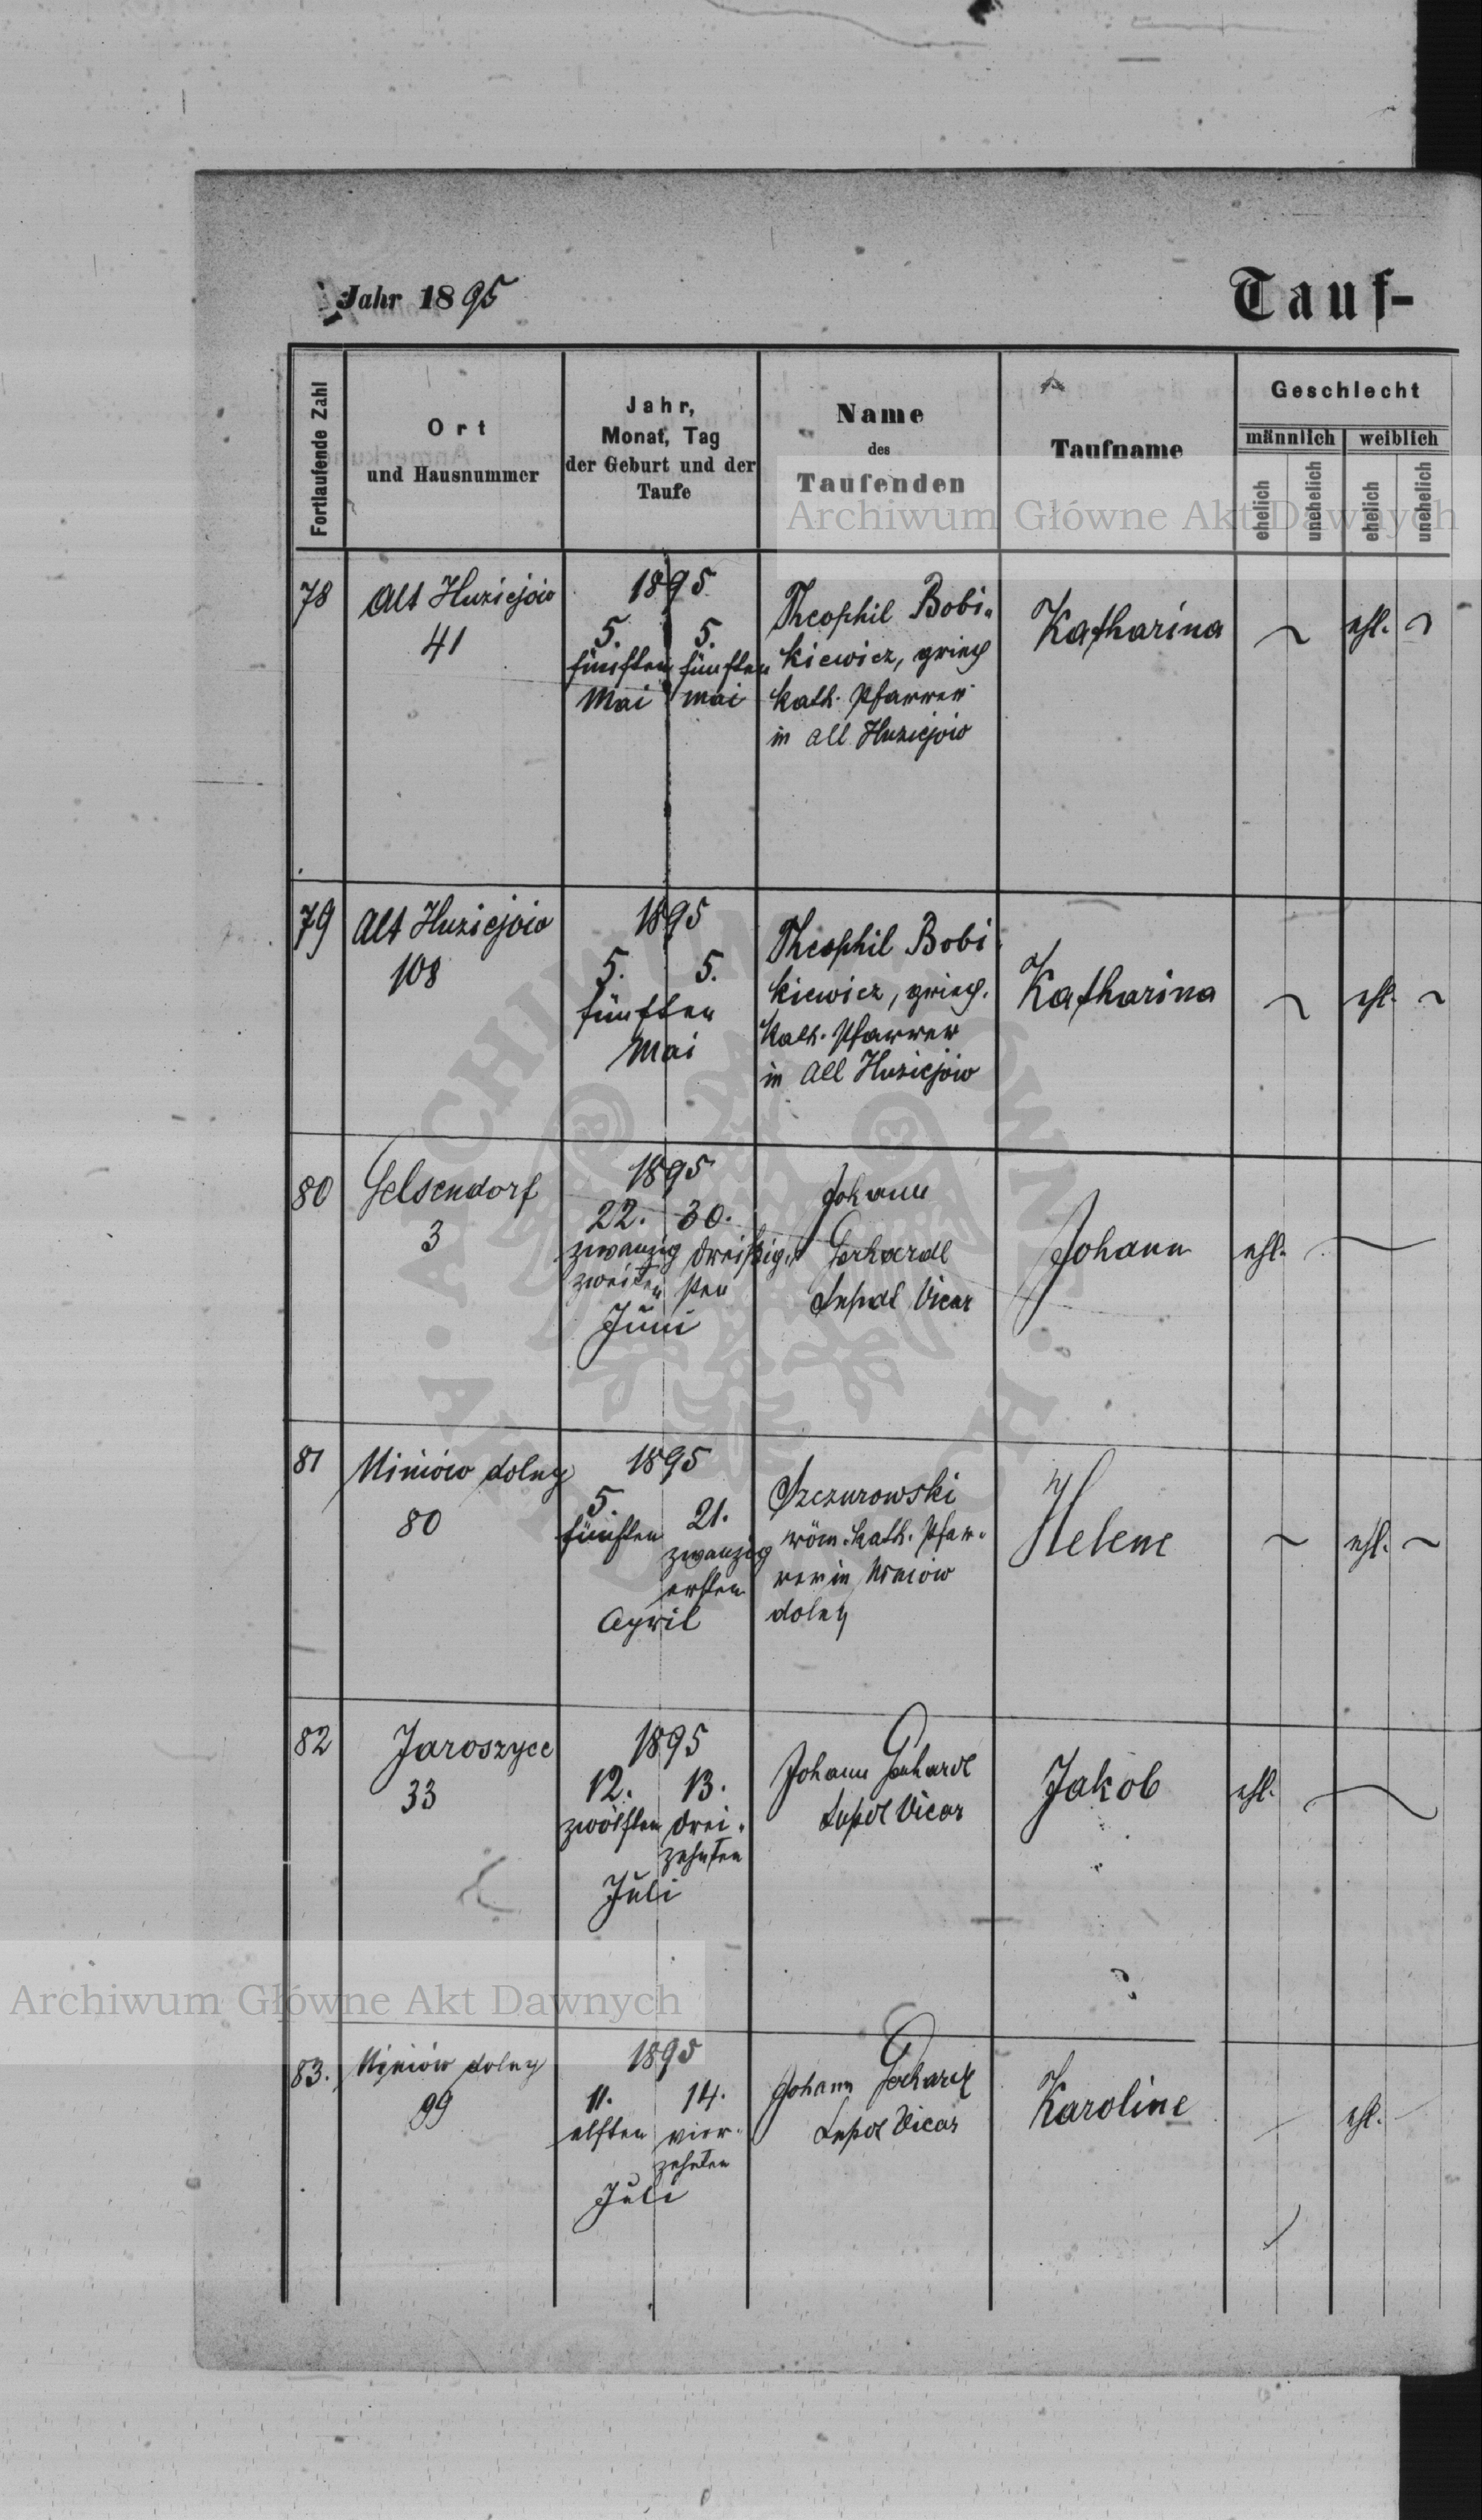 Jahr 1895
Tauf-
Fortlaufende Zahl
Ort
und Hausnummer
Jahr,
Monat, Tag
der Geburt und der
Taufe
Name
des
Taufenden
Taufname
Geschlecht
männlich weiblich
ehelich unehelich ehelich unehelich
Archiwum Główne Akt Dawnych
78
Alt Huziejów
41
1895
5. 5.
fünften fünften
Mai Mai
Theophil Bobi-
kiewicz, griech
kath. Pfarrer
in Alt Huziejów
Katharina
ehl.
79
Alt Huziejów
108
1895
5. 5.
fünften
Mai
Theophil Bobi
kiewicz, griech.
kath. Pfarrer
in Alt Huziejów
Katharina
ehl.
80
Gelsendorf
3
1895
22. 30.
zwanzig dreißig-
zweiten sten
Juni
Johann
Gerhardt
Vicar
Johann
ehl.
81
dolny
80
1895
5. 21.
fünften
zwanzig
ersten
April
Szczurowski
röm. kath. Pfar-
rer in
dolny
Helene
ehl.
82
Jaroszyce
33
1895
12. 13.
zwölften drei-
zehnten
Juli
Johann Gerhardt
Vicar
Jakob
ehl.
Archiwum Główne Akt Dawnych
83.
dolny
99
1895
11. 14.
elften vier-
zehnten
Juli
Johann Gerhardt
Vicar
Karoline
ehl.